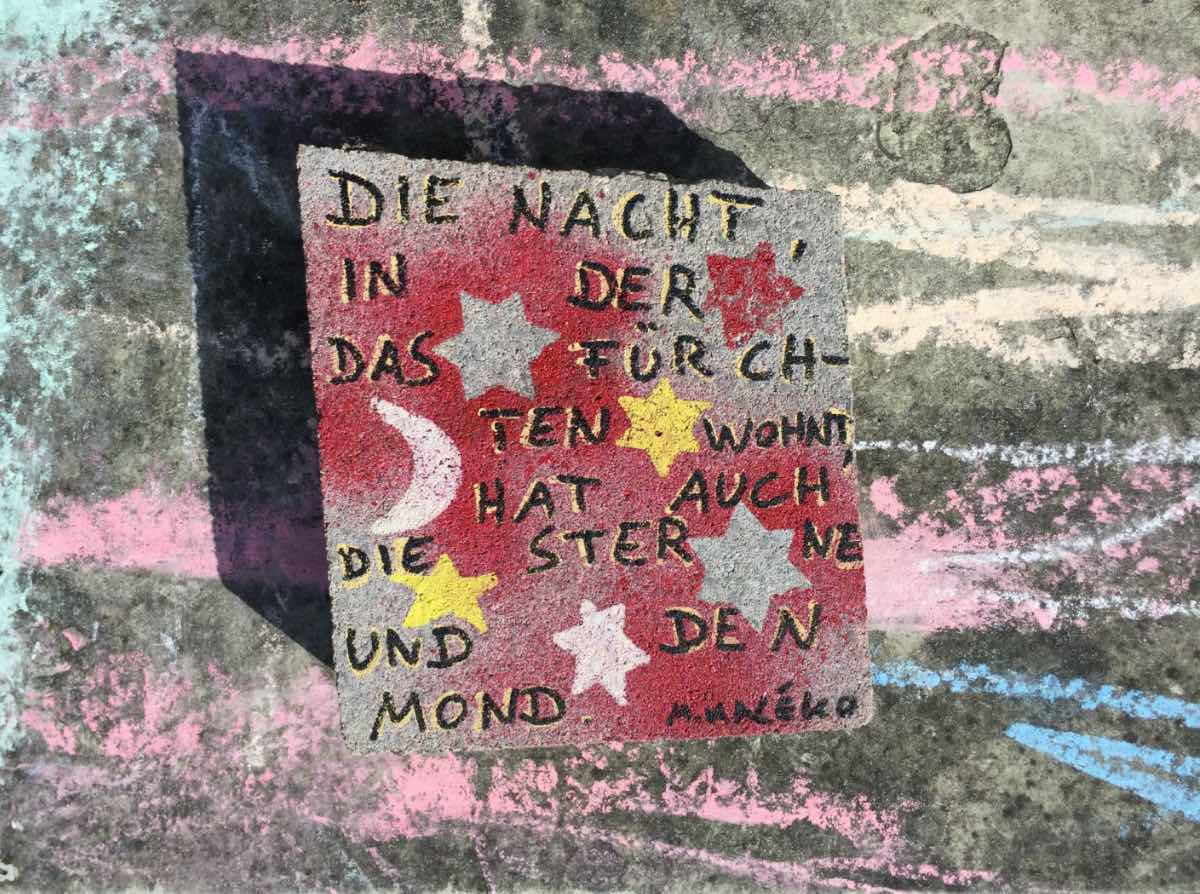 DIE NACHT,
IN DER
DAS FÜRCH-
TEN WOHNT,
HAT AUCH
DIE STERNE
UND DEN
MOND. M. KALÉKO